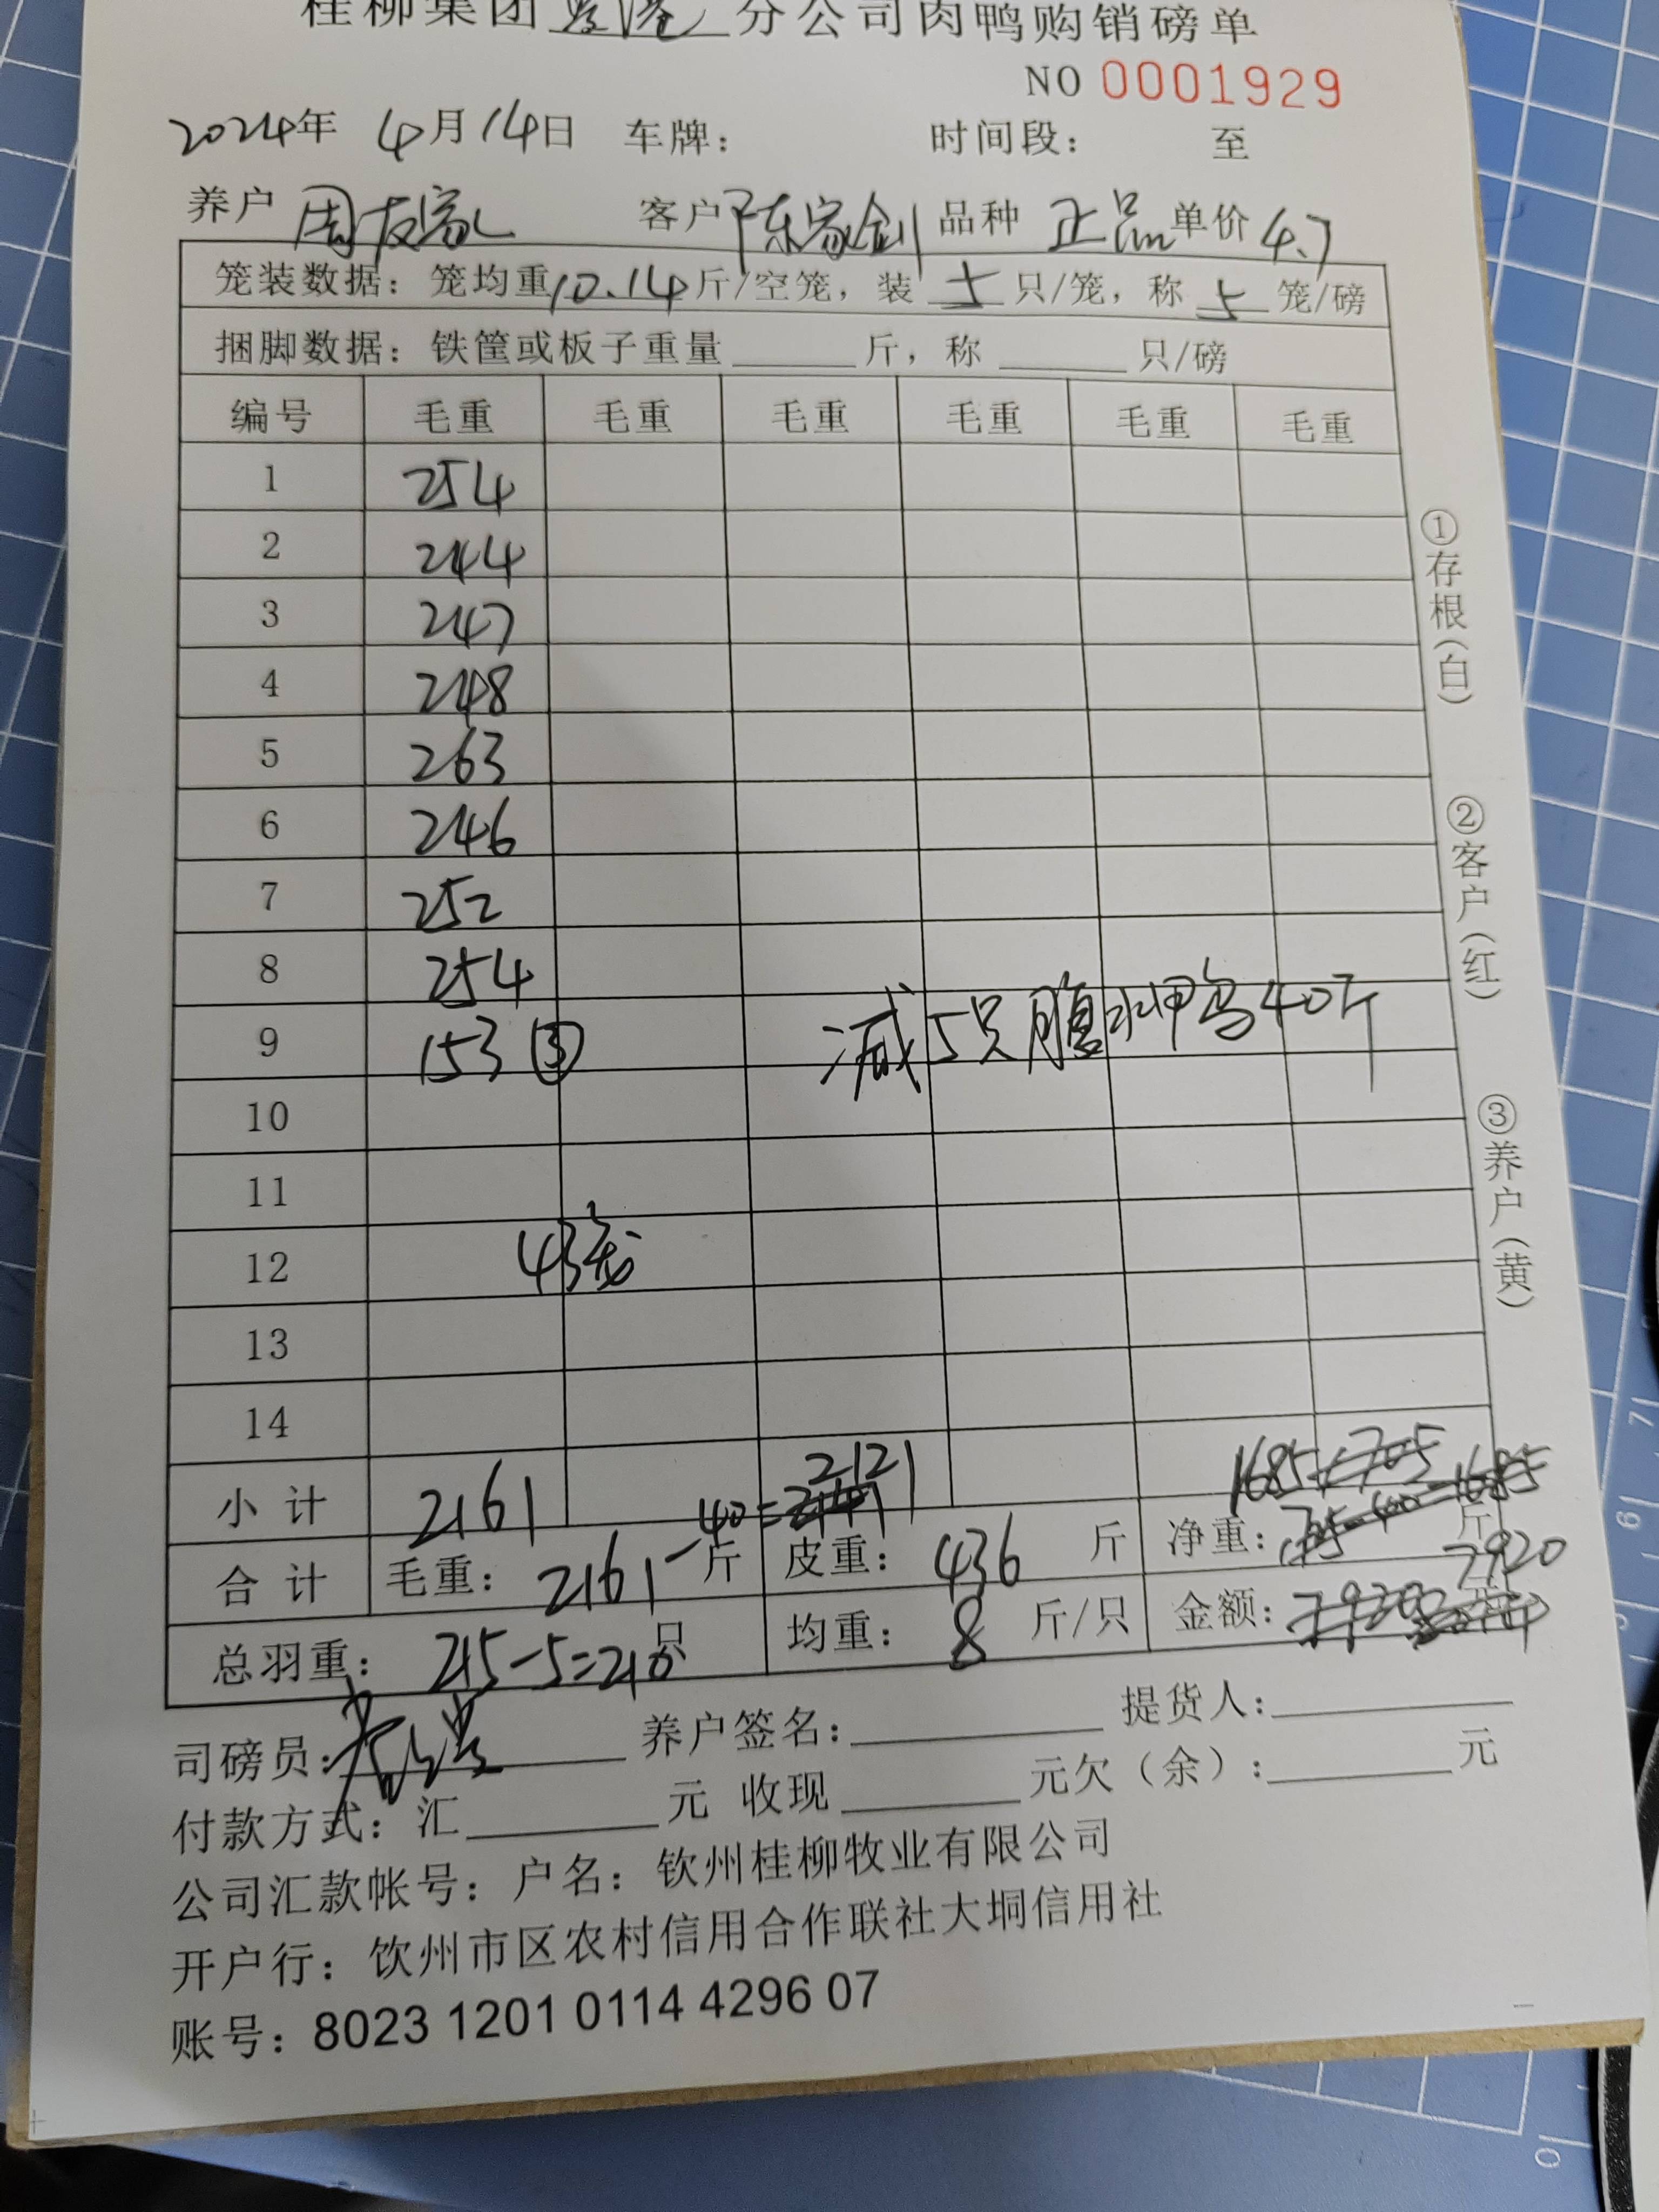 桂柳集团 分公司肉鸭购销磅单
NO 0001929
2024年 4月14日 车牌： 时间段： 至
养户 周友家 客户 陈家剑 品种 正品 单价 4.7
笼装数据：笼均重10.14斤/空笼，装 5 只/笼，称 5 笼/磅
捆脚数据：铁筐或板子重量______斤，称______只/磅
编号 毛重 毛重 毛重 毛重 毛重 毛重
1 254
2 244
3 247
4 248
5 263
6 246
7 252
8 254
9 153 ③ 减5只腹水鸭 40斤
10
11
12 43笼
13
14
小计 2161
合计 毛重：2161-40=2121斤 皮重：436斤 净重：1685斤
总羽重：215-5=210只 均重：8斤/只 金额：7920
司磅员： 养户签名：______ 提货人：______
付款方式：汇______元 收现______元欠（余）：______元
公司汇款帐号：户名：钦州桂柳牧业有限公司
开户行：饮州市区农村信用合作联社大垌信用社
账号：8023 1201 0114 4296 07
①存根（白）
②客户（红）
③养户（黄）